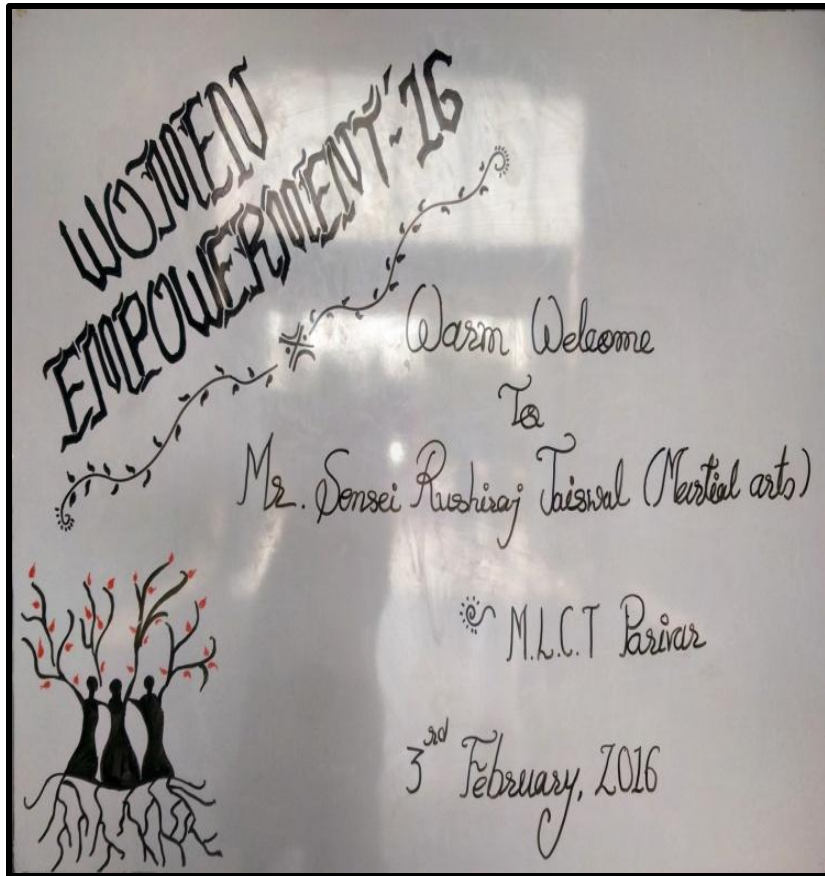 WOMEN
EMPOWERMENT'-16
Warm Welcome
To
Mr. Sensei Rushiraj Jaiswal (Martial arts)
M.L.C.T Parivar
3rd February, 2016